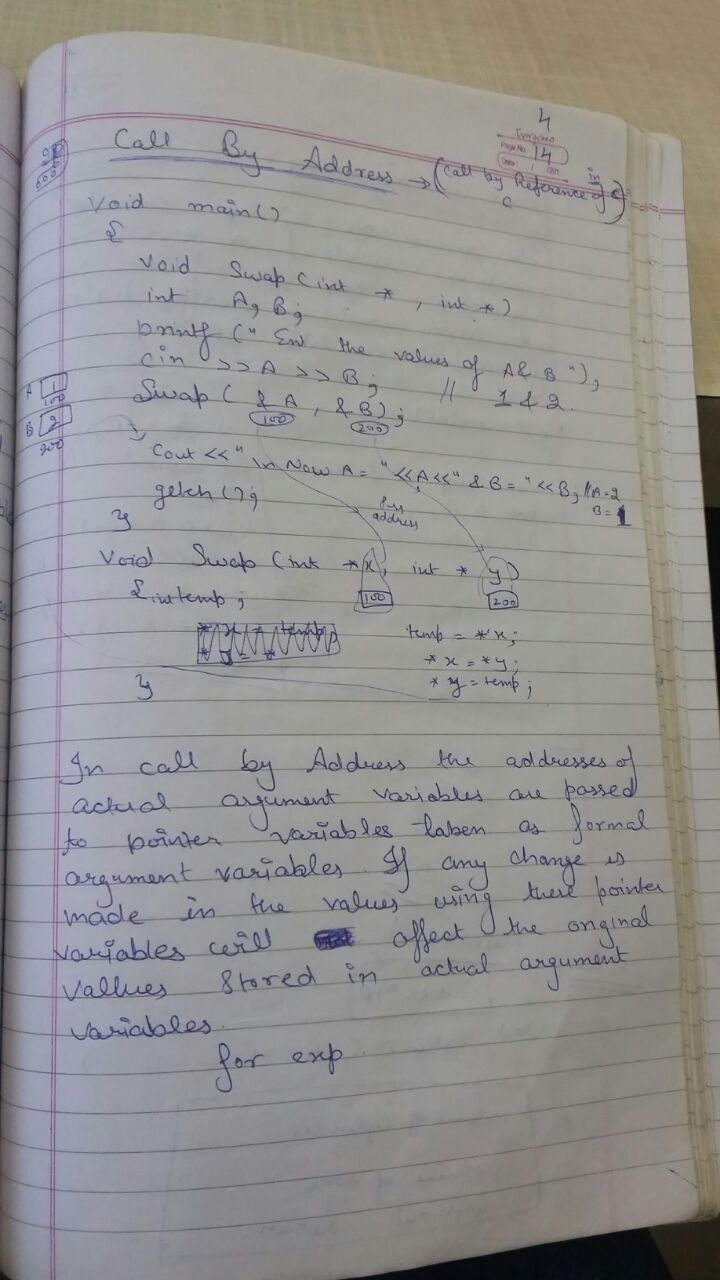 4
Evergreen
Page No. 14
Call By Address → (Call by Reference of in C
c
void main()
{
void Swap (int *, int *)
int A, B;
printf (" Ent the values of A & B ");
cin >> A >> B; // 1 & 2.
Swap ( & A , & B);
100 200
A 1
100
B 2
200
Cout << " \n Now A = " << A << " & B = " << B; // A = 2
B = 1
getch ();
}
Pass
address
void Swap (int * x, int * y)
100 200
{ int temp;
temp = * x;
* x = * y;
* y = temp;
}
In call by Address the addresses of
actual argument variables are passed
to pointer variables taken as formal
argument variables. If any change is
made in the values using these pointer
variables will affect the original
vallues stored in actual argument
variables.
for exp.